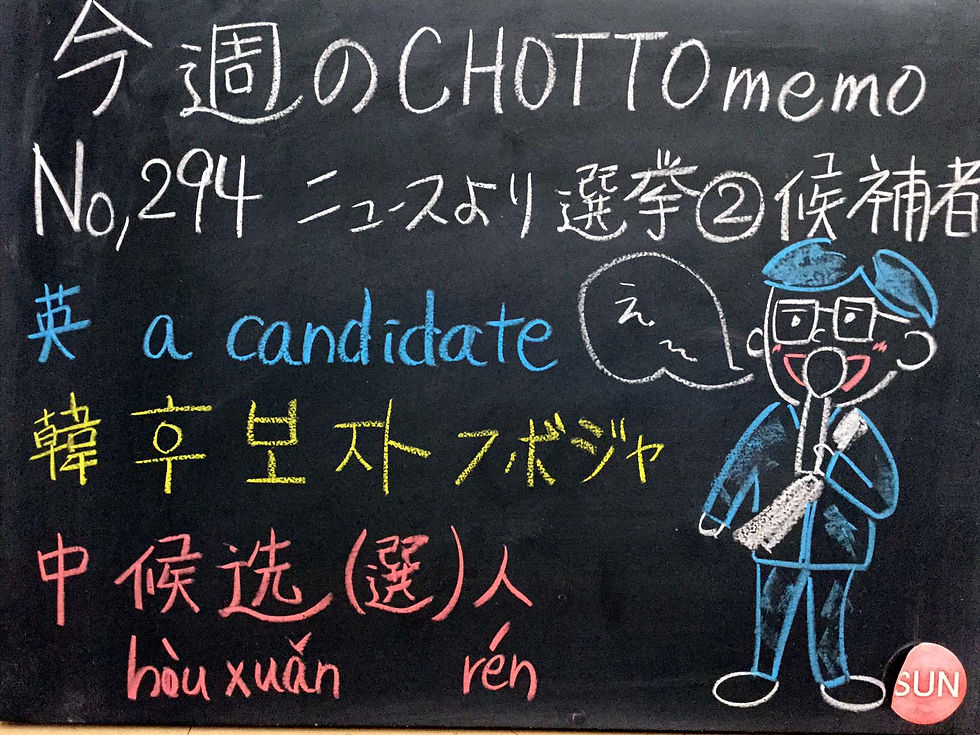 今週のCHOTTOmemo
No,294 ニュースより 選挙②候補者
英 a candidate
え〜
韓 후보자 フボジャ
中 候选(選)人
hòu xuǎn rén
SUN